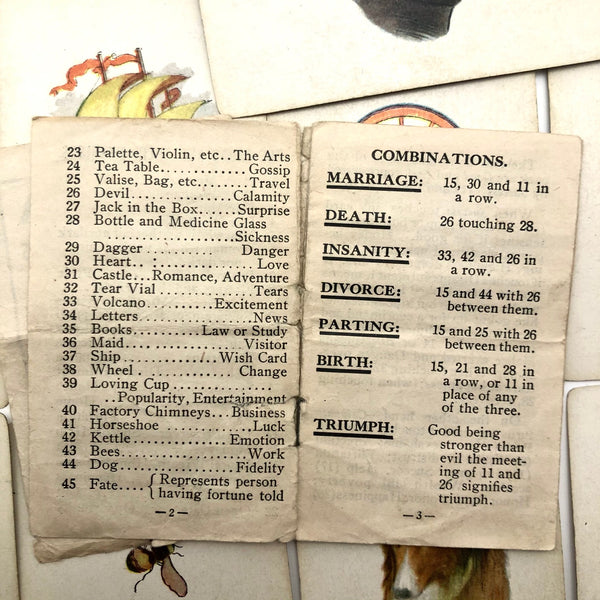 23 Palette, Violin, etc..The Arts
24 Tea Table.............Gossip
25 Valise, Bag, etc........Travel
26 Devil................Calamity
27 Jack in the Box......Surprise
28 Bottle and Medicine Glass
......................Sickness
29 Dagger..............Danger
30 Heart..................Love
31 Castle...Romance, Adventure
32 Tear Vial..............Tears
33 Volcano..........Excitement
34 Letters.................News
35 Books.........Law or Study
36 Maid.................Visitor
37 Ship..............Wish Card
38 Wheel...............Change
39 Loving Cup..............
..Popularity, Entertainment
40 Factory Chimneys...Business
41 Horseshoe..............Luck
42 Kettle..............Emotion
43 Bees...................Work
44 Dog.................Fidelity
45 Fate....{Represents person
having fortune told
—2—
COMBINATIONS.
MARRIAGE: 15, 30 and 11 in
a row.
DEATH: 26 touching 28.
INSANITY: 33, 42 and 26 in
a row.
DIVORCE: 15 and 44 with 26
between them.
PARTING: 15 and 25 with 26
between them.
BIRTH: 15, 21 and 28 in
a row, or 11 in
place of any
of the three.
TRIUMPH: Good being
stronger than
evil the meet-
ing of 11 and
26 signifies
triumph.
—3—